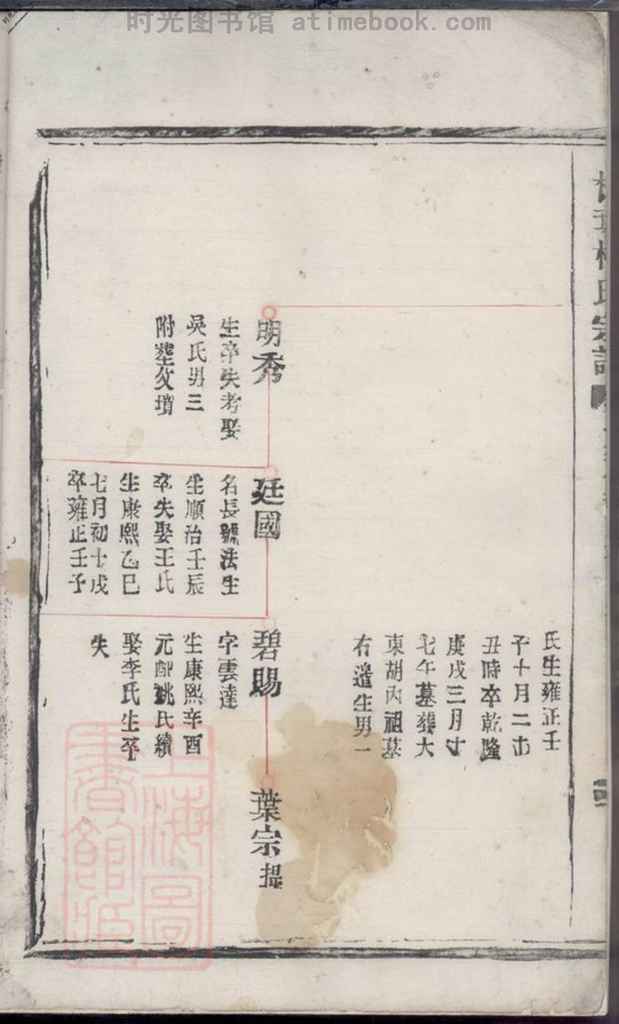 时光图书馆 atimebook.com
氏生雍正壬
子十月二十
丑時卒乾隆
庚戌三月廿
七午墓葬大
東胡內祖墓
右邊生男一
明秀
生卒失考娶
吳氏男三
附塟父墳
廷國
名長號法生
生順治壬辰
卒失娶王氏
生康熙乙巳
七月初十戌
卒雍正壬子
碧賜
字雲達
生康熙辛酉
元配姚氏續
娶李氏生卒
失
葉宗提
上海圖
書館藏